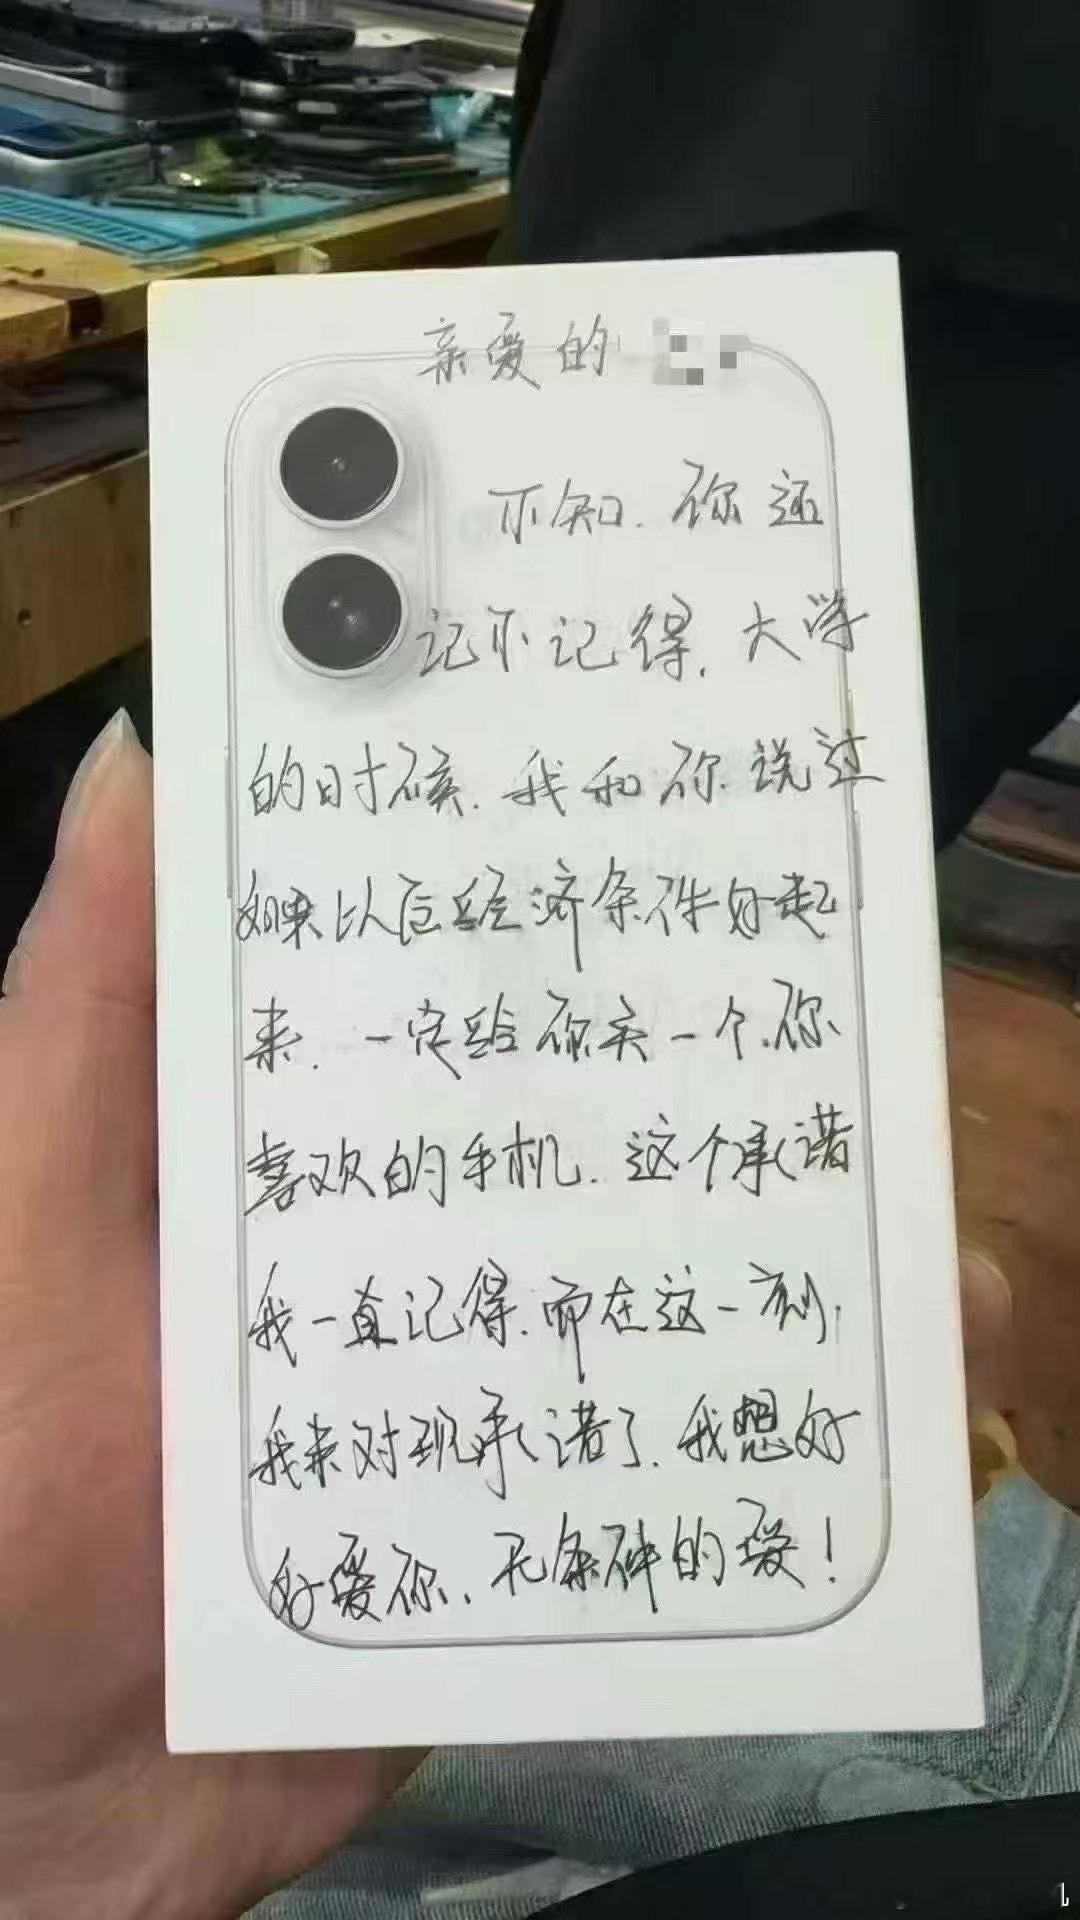 亲爱的
不知.你还
记不记得.大学
的时候.我和你说过
如果以后经济条件好起
来.一定给你买一个.你
喜欢的手机.这个承诺
我一直记得.而在这一刻.
我来对现承诺了.我想好
好爱你.无条件的爱!